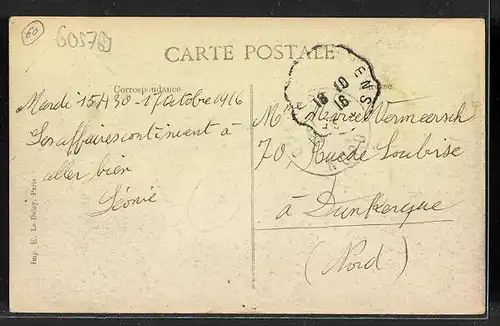 60
60578
CARTE POSTALE
Correspondance
Adresse
Mardi 15H30 - 17 Octobre 1916
Les affaires continuent à
aller bien
Léonie
Mme Marcel Vermeersch
70, Rue de Soubise
à Dunkerque
(Nord)
ENS
18 10
16
Imp. E. Le Deley, Paris